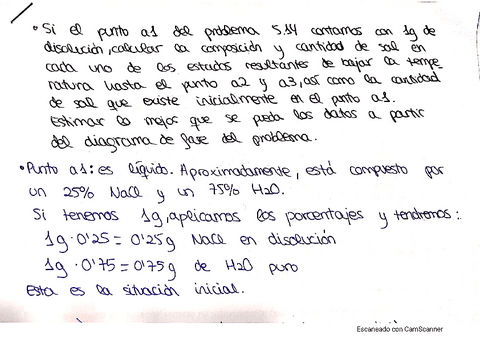 • Si el punto a1 del problema 5.14 contamos con 1g de
disolución, calcular la composición y cantidad de sal en
cada uno de los estados resultantes de bajar la tempe-
ratura hasta el punto a2 y a3, así como la cantidad
de sal que existe inicialmente en el punto a1.
Estimar lo mejor que se pueda los datos a partir
del diagrama de fase del problema.
• Punto a1: es líquido. Aproximadamente, está compuesto por
un 25% NaCl y un 75% H2O.
Si tenemos 1g, aplicamos los porcentajes y tendremos:
1g · 0'25 = 0'25g NaCl en disolución
1g · 0'75 = 0'75g de H2O puro
Esta es la situación inicial.
Escaneado con CamScanner